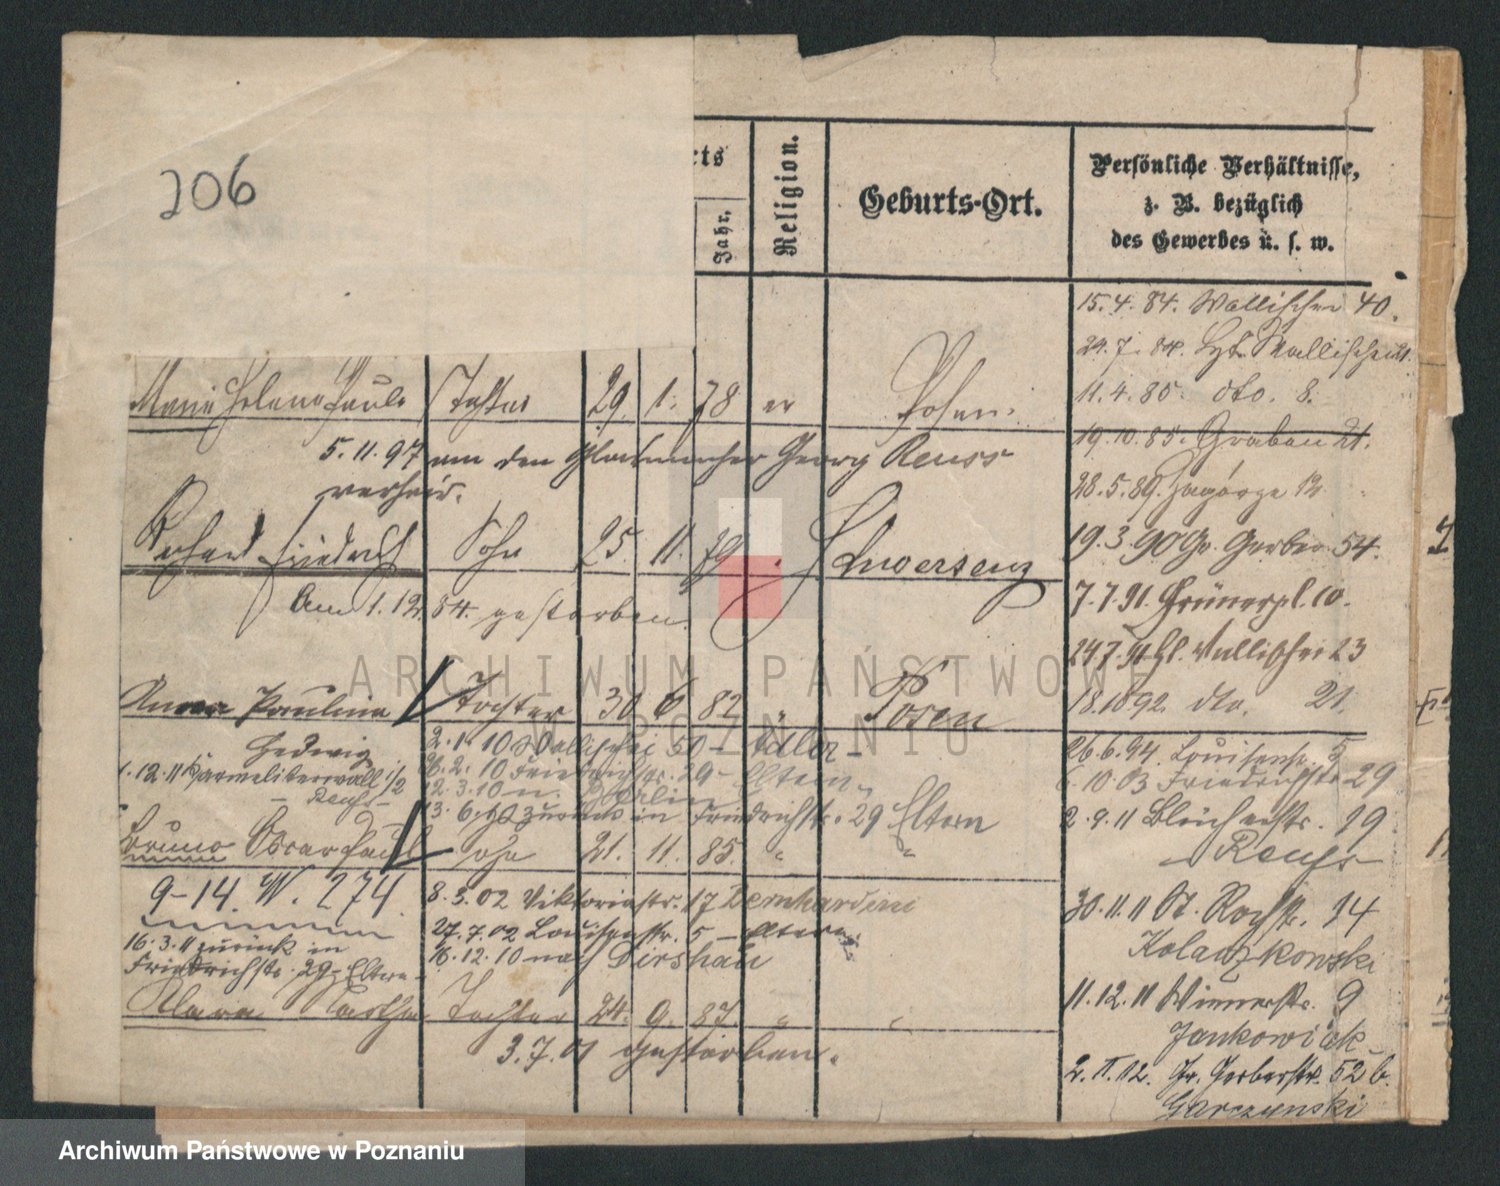 206
Religion.
Jahr.
Geburts-Ort.
Persönliche Verhältnisse,
z. B. bezüglich
des Gewerbes u. s. w.
15.4.84. Wallischei 40.
29.7.84. Wallischei 21.
11.4.85. dto. 8.
19.10.85. Graben 21.
28.5.89. Zagórze 12
19.3.90 Gr. Gerber 54.
7.7.91. Grünerpl. 10.
24.7.91 Wallischei 23
18.10 92. dto. 21.
26.6.94. Louisenstr. 5
10 03 Friedrichstr 29
2.9.11 Bleicherstr. 19
Reuss
30.11.11 St. Rochstr. 14
Kolaczkowski
11.12.11 Wienerstr. 9
Jankowiak
2.II.12. Gr. Gerberstr. 52 b.
Garczynski
Marie Helene Paula Tochter 29. 1. 78 ev Posen.
5.11.97 an den Georg Reuss
verheir.
Richard Friedrich Sohn 25 11. 79 Schwersenz
Am 1.12. 84. gestorben.
Anna Paulina Tochter 30 6 82 Posen
Hedwig 2.1.10 Wallischei 50 – Adler –
1.12.11 Karmeliterwall 1/2 26.2.10 Friedrichstr. 29 – Eltern
– Reuss – 2.3.10 n. Berlin
13.6. zurück in Friedrichstr. 29 Eltern
Bruno Oscar Paul Sohn 21. 11. 85. " "
9–14. W. 274 8.3.02 Viktoriastr. 17 Bernhardini
27.7.02 Louisenstr. 5 – Eltern
16.3.11 zurück in 16.12.10 nach Dirschau
Friedrichstr. 29 – Eltern
Klara Martha Tochter 24. 9. 87. " "
3.7.01 gestorben.
ARCHIWUM PAŃSTWOWE
W POZNANIU
Archiwum Państwowe w Poznaniu